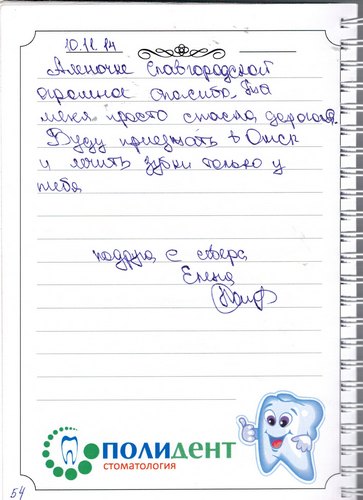 10.11.14
Аленочке Славгородской
огромное спасибо. Ты
меня просто спасла дорогая.
Буду приезжать в Омск
и лечить зубки только у
тебя
подруга с севера
Елена
ПОЛИДЕНТ
СТОМАТОЛОГИЯ
54